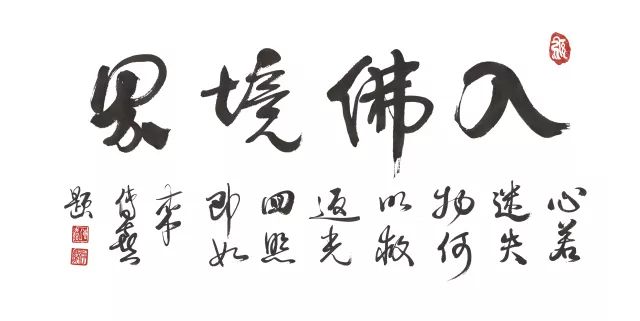 入佛境界
心若
迷失
物何
以救
返光
回照
即如
来
傳喜
題